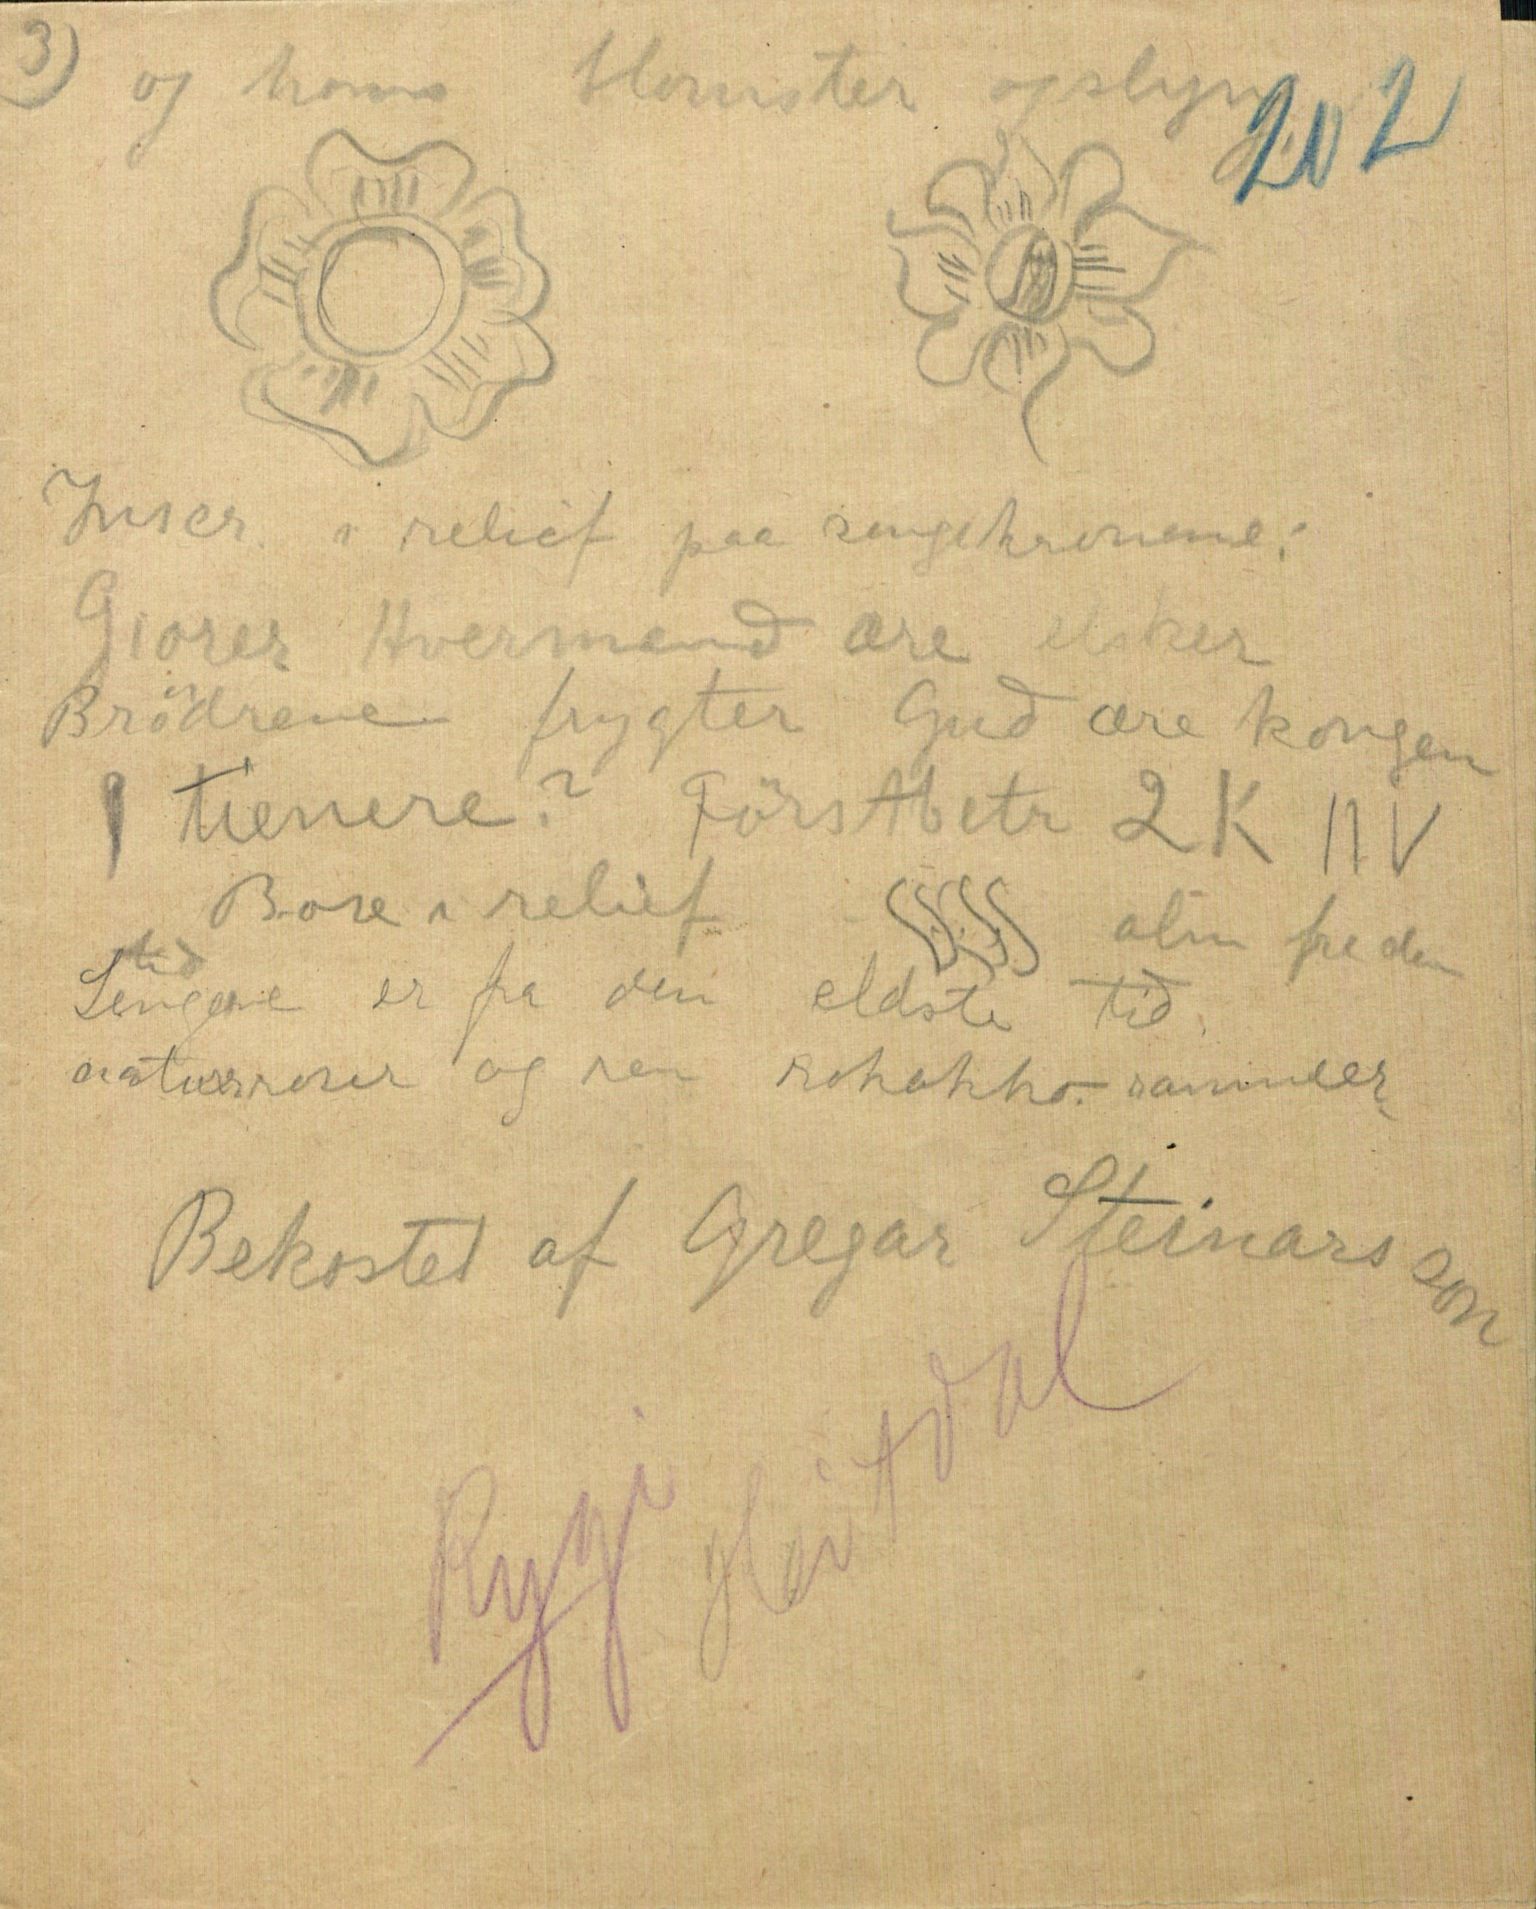 3) og hans blomster og slyng
202
Inscr. i relief paa sengekronene:
Giorer Hvermand ære elsker
Brödrene frygter Gud ære kongen
I tienere? Förstbetr 2 K 11 V
Bore i relief alm fre den
tid
Sengene er fra den eldste tid.
naturroser og ren rokokko-rammeer
Bekostet af Gregar Steinarsson
Rygi Hvitdal